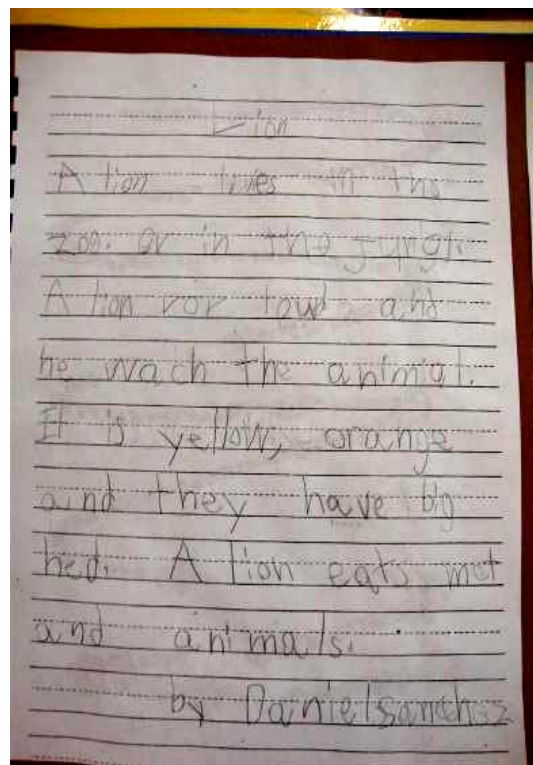 Lion
A lion lives in the
zoo. or in the jungl.
A lion ror loud and
he wach the animal.
It is yellow, orange
and they have big
hed. A lion eats met
and animals.
by Daniel Sanchez